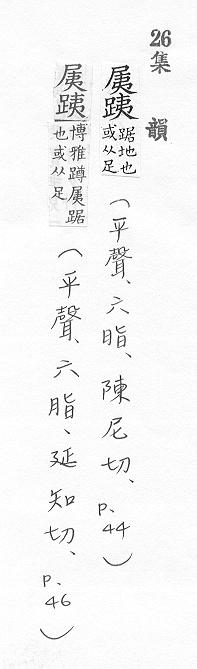 26
集韻
𡱐跠踞地也或从足（平聲、六脂、陳尼切、p.44）
𡱐跠博雅蹲𡱐踞也或从足（平聲、六脂、延知切、p.46）